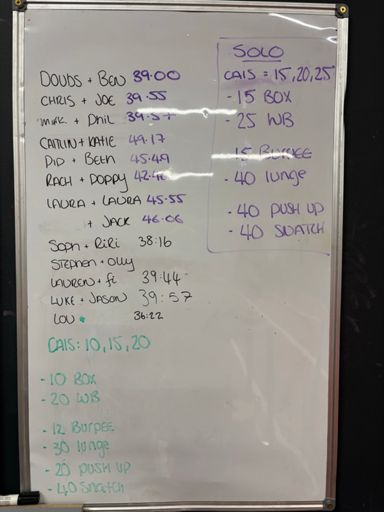 DOUBS + BEN 39.00
CHRIS + JOE 39.55
Mark + Phil 39.57
CAITLIN + KATIE 49.17
DID + Beth 45.49
RACH + POPPY
LAURA + LAURA 45.55
+ JACK 46.06
Soph + RiRi 38:16
STEPHEN + Olly
LAUREN + 39:44
LUKE + JASON 39:57
LOU 36:22
CALS: 10, 15, 20
- 10 BOX
- 20 WB
- 12 BURPEE
- 30 lunge
- 20 PUSH UP
- 40 Snatch
SOLO
CALS = 15, 20, 25
- 15 BOX
- 25 WB
- 15 BURPEE
- 40 lunge
- 40 PUSH UP
- 40 SNATCH